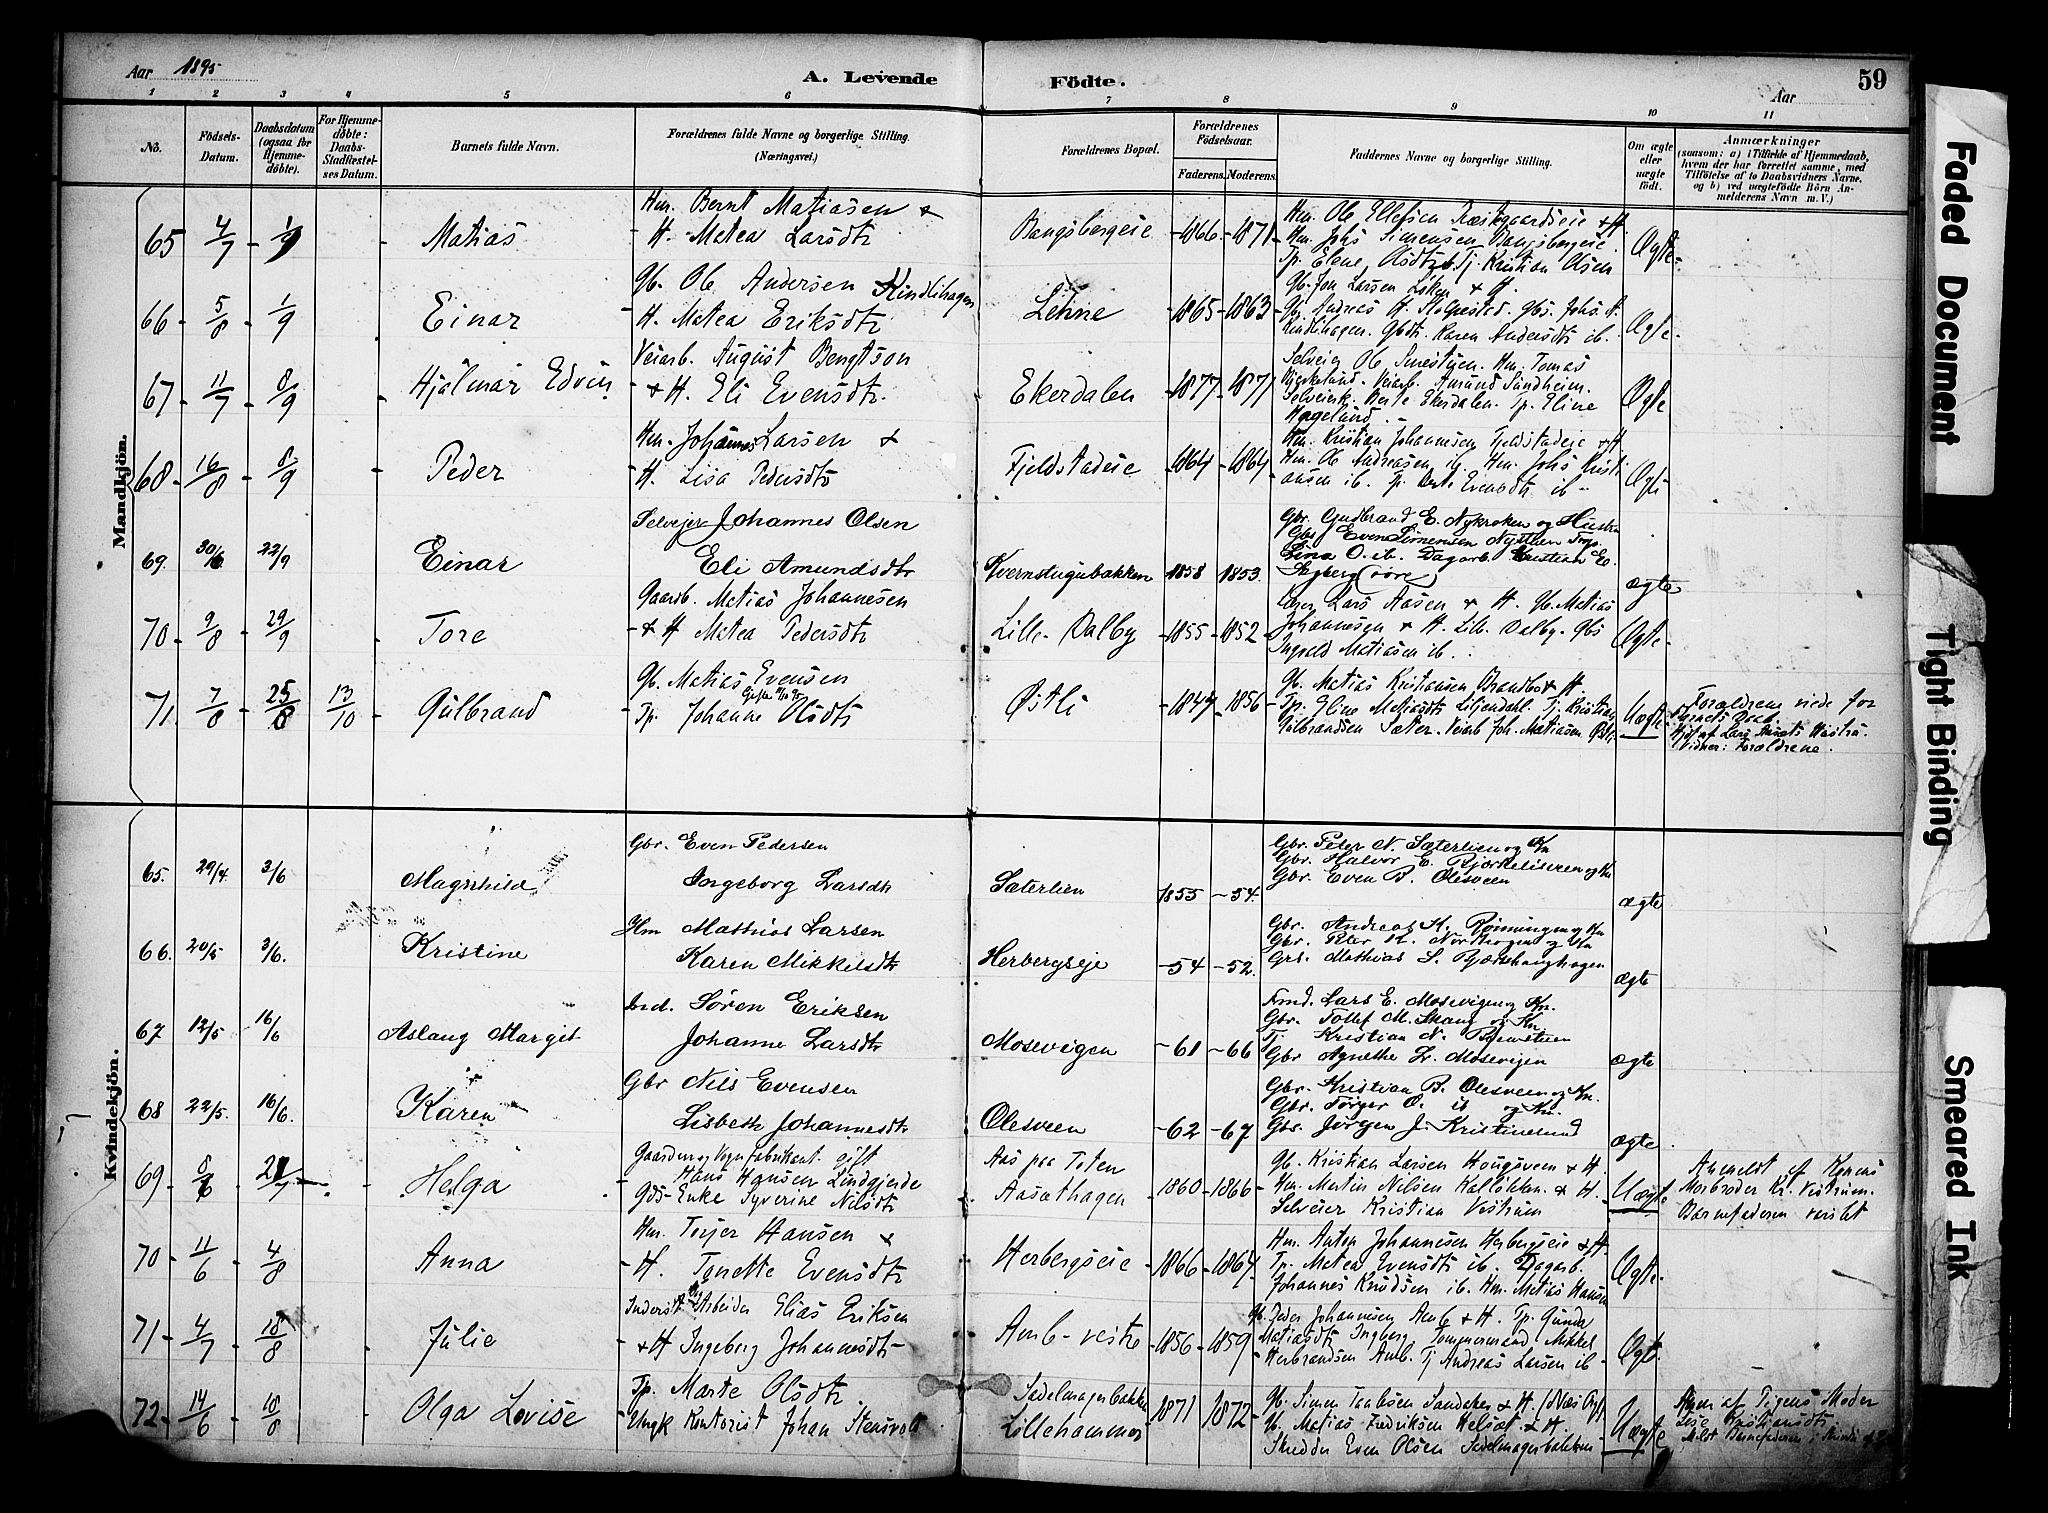 Aar 1895
A. Levende
Födte.
59
Aar
1 2 3 4 5 6 7 8 9 10 11
No.
Födsels-Datum.
Daabsdatum (ogsaa for Hjemmedöbte).
For Hjemmedöbte: Daabs-Stadfæstelses Datum.
Barnets fulde Navn.
Forældrenes fulde Navne og borgerlige Stilling. (Næringsvei.)
Forældrenes Bopæl.
Forældrenes Födselsaar.
Faderens. Moderens.
Faddernes Navne og borgerlige Stilling.
Om ægte eller uægte födt.
Anmærkninger
(saasom: a) i Tilfælde af Hjemmedaab, hvem der har forrettet samme, med Tilföielse af to Daabsvidners Navne, og b) ved uægtefödte Börn Anmelderens Navn m.V.)
Mandkjön.
65 4/7 1/9 Matias
Hm. Bernt Matiasen &
H. Matea Larsdtr
Bangsbergeie 1866 - 1871
Hm. Ole Ellefsen Præstgaardseie & H.
Hm. Johs Simensen Bangsbergeie.
Tp. Elene Olsdtr ib. Tj. Kristian Olsen
Ægte
66 5/8 1/9 Einar
Gb. Ole Andersen Kindlihagen
H. Matea Eriksdtr
Lehne 1865 - 1863
Gb. Jon Larsen Löken & H.
Kindlihagen. Gbdtr. Karen Andersdtr ib.
Ægte
67 11/7 8/9 Hjalmar Edvin
Veiarb. August Bengtson
& H. Eli Evensdtr.
Ekerdalen 1877 - 1871
Selveier Ole Smestuen. Hm. Tomas
Bjerkelund. Veiarb. Amund Sandheim.
Selveierk. Berte Ekerdalen. Tp. Eline
Hagelund.
Ægte
68 16/8 8/9 Peder
Hm. Johannes Larsen &
H. Lisa Pedersdtr
Fjeldstadeie 1864 - 1864
Hm. Kristian Johannesen Fjeldstadeie & H
Hm. Ole Andreasen ib. Hm. Johs Kristi
ansen ib. Tp. Berte Evensdtr ib
Ægte
69. 30/6 22/9 Einar
Selvejer Johannes Olsen
Eli Amundsdtr
Kvernstugubakken 1858 1853.
Gbr. Gudbrand E. Nykroken og Hustru
Gbs Even Simensen Nystuen
Lina O. ib. Dagarb. Kristian E.
ægte
70 9/8 29/9 Tore
Gaardb. Matias Johannesen
& H Matea Pedersdtr
Lille-Dalby 1855 - 1852
Lars Aasen & H. Gb. Matias
Johannesen & H. Lille Dalby. Gbs
Ingvald Matiasen ib.
Ægte
71. 7/8 25/8 13/10 Gulbrand
Gb. Matias Evensen
Tp. Johanne Olsdtr
Østli 1847 - 1856
Gb. Matias Kristiansen Brandbo & H.
Tp. Eline Matiasdtr Liljendahl. Tj. Kristian
Gulbrandsen Sæter. Veiarb Joh. Matiasen Østli
Uægte
Forældrene viede for
Barnets Daab.
Hjd. af Lars Hustru.
Vidner: Forældrene.
Kvindekjön.
65. 29/4. 3/6 Magnhild
Gbr. Even Pedersen
Ingeborg Larsdtr
Sæterlien 1855 - 54.
Gbr. Peter N. Sæterlien og Kn
Gbr. Halvor E. Bjørkelisveen og Kn
Gbr. Even B. Olesveen
ægte
66. 20/5 3/6. Kristine
Hm Mathias Larsen
Karen Mikkelsdtr
Herbergseje - 54 - 52.
Gbr. Andreas K. Rønningen og Kn
Gbr. Peter K. Nordhagen og Kn
Gbs. Mathias S. Bjørkehaughagen
ægte
67 12/5 16/6 Aslaug Margit
Ind. Søren Eriksen
Johanne Larsdtr
Mosevigen - 61 - 66
Fmd. Lars E. Mosevigen og Kn.
Gbr. Tollef M. Skaug og Kn.
Tj. Kristian N. Bjørnstuen
Gbr Agnethe L. Mosevigen
ægte
68 22/5. 16/6. Karen
Gbr Nils Evensen
Lisbeth Johannesdtr
Olesveen - 62 - 67
Gbr. Kristian B. Olesveen og Kn.
Gbr. Tørger O. ib og Kn.
Gbs. Jörgen J. Kristinelund
ægte
69 8/6 21/7 Helga
Gaardeier og Vognfabrikant. gift
Hans Hansen Lindgjerde
Gds-Enke Syverine Nilsdtr
Aas paa Toten
Aasethagen 1860 - 1866
Gb. Kristian Larsen Haugsveen & H
Hm. Martin Nilsen Kallökken & H.
Selveier Kristian Vistrum
Uægte
Anmeldt af Konens
Morbroder Kr. Vistrum.
Barnefaderen varslet
70 11/6 4/8 Anna
Hm. Torjer Hansen &
H. Tonette Evensdtr
Herbergseie 1866 - 1864
Hm. Anton Johannesen Herbergseie & H.
Tp. Matea Evensdtr ib. Dagarb.
Johannes Knudsen ib. Hm. Matias Hansen
Ægte
71 4/7 18/8 Julie
Inderst & Arbeider Elias Eriksen
& H Ingeborg Johannesdtr
Amb-vestre 1856 - 1859
Gb. Peder Johannesen Amb & H. Tp. Gunda
Matiasdtr Ingberg. Tömmermand Mikkel
Herbrandsen Amb. Tj Andreas Larsen ib
Ægte.
72 14/6 18/8 Olga Lovise
Tp. Marte Olsdtr
Ungk Kontorist Johan Stensvold
Sadelmagerbakken
Lillehammer 1871 1872
Gb. Simen Sandaker & H.
Gb. Matias Fredriksen Helsæt & H.
Skredder Even Olsen Sadelmagerbakken
Uægte
Anm af Pigens Moder
Lise Kristiansdtr.
Barnefaderen
Faded Document
Tight Binding
Smeared Ink